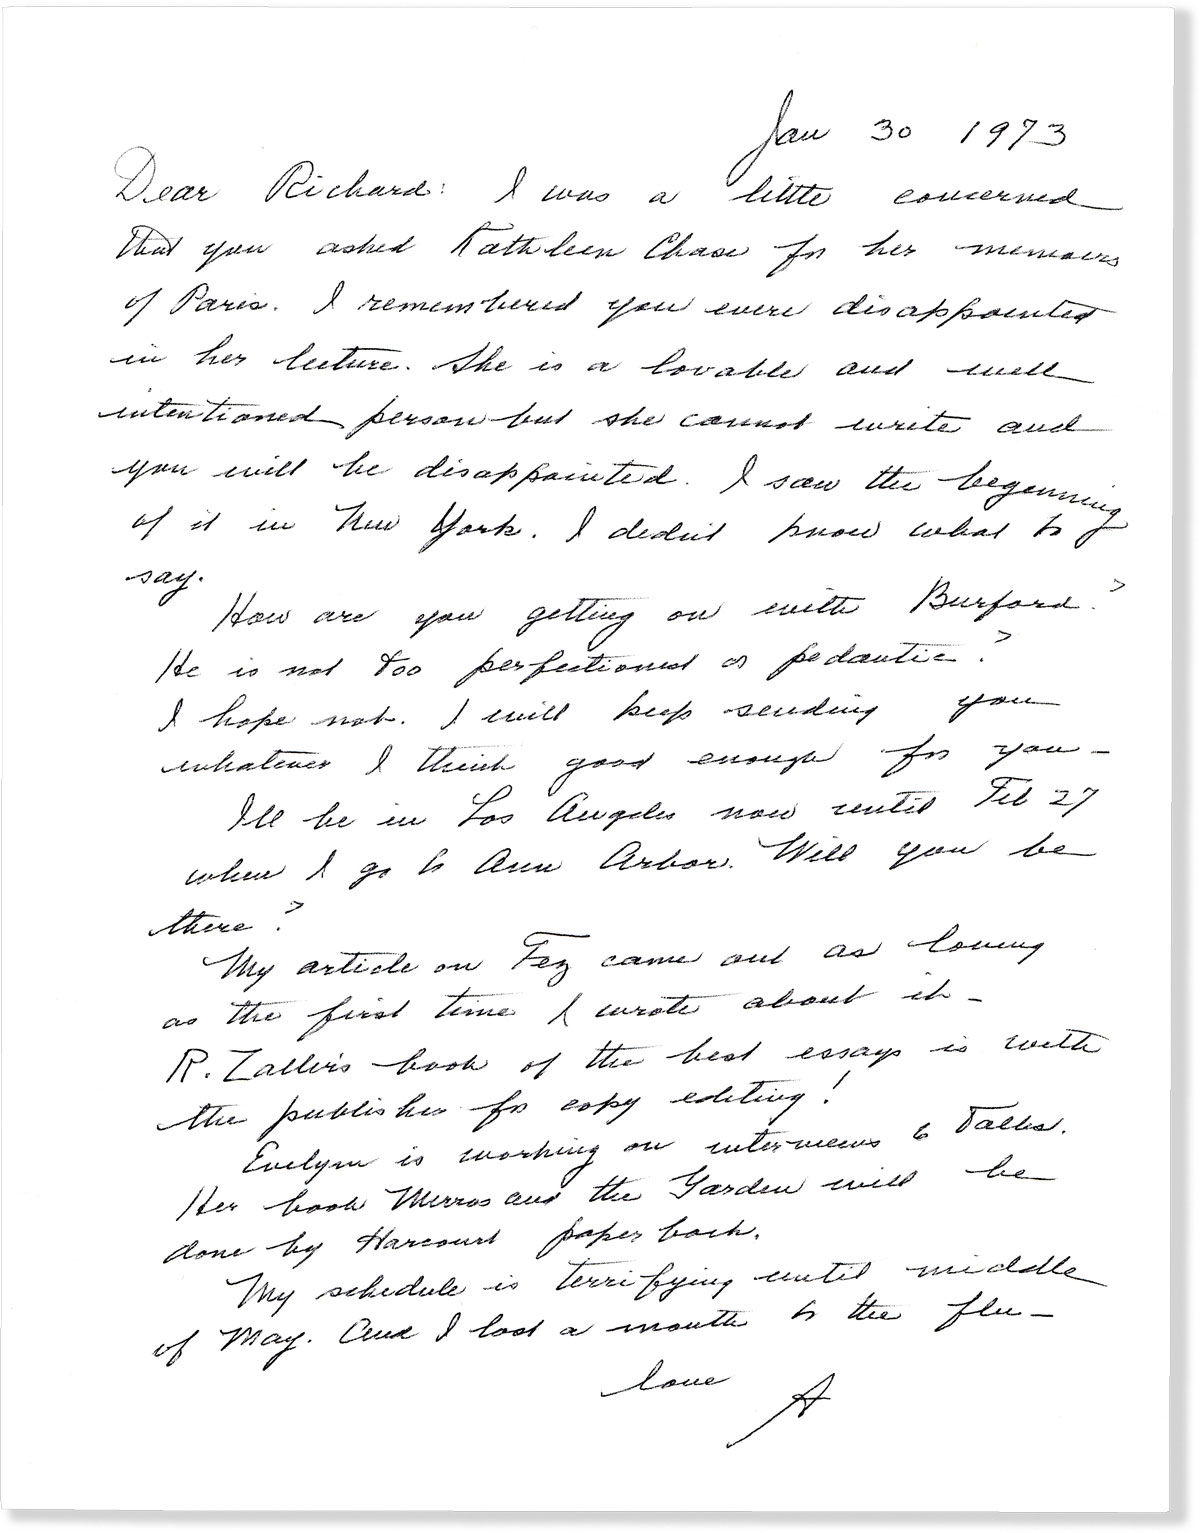 Jan 30 1973
Dear Richard: I was a little concerned
that you asked Kathleen Chase for her memoirs
of Paris. I remembered you were disappointed
in her lecture. She is a lovable and well
intentioned person but she cannot write and
you will be disappointed. I saw the beginning
of it in New York. I didn't know what to
say.
How are you getting on with Burford?
He is not too perfectionist or pedantic?
I hope not. I will keep sending you
whatever I think good enough for you –
I'll be in Los Angeles now until Feb 27
when I go to Ann Arbor. Will you be
there?
My article on Fez came out as loving
as the first time I wrote about it –
R. Zaller's book of the best essays is with
the publisher for copy editing!
Evelyn is working on interviews & Talks.
Her book Mirror and the Garden will be
done by Harcourt paper back.
My schedule is terrifying until middle
of May. And I lost a month to the flu –
love
A